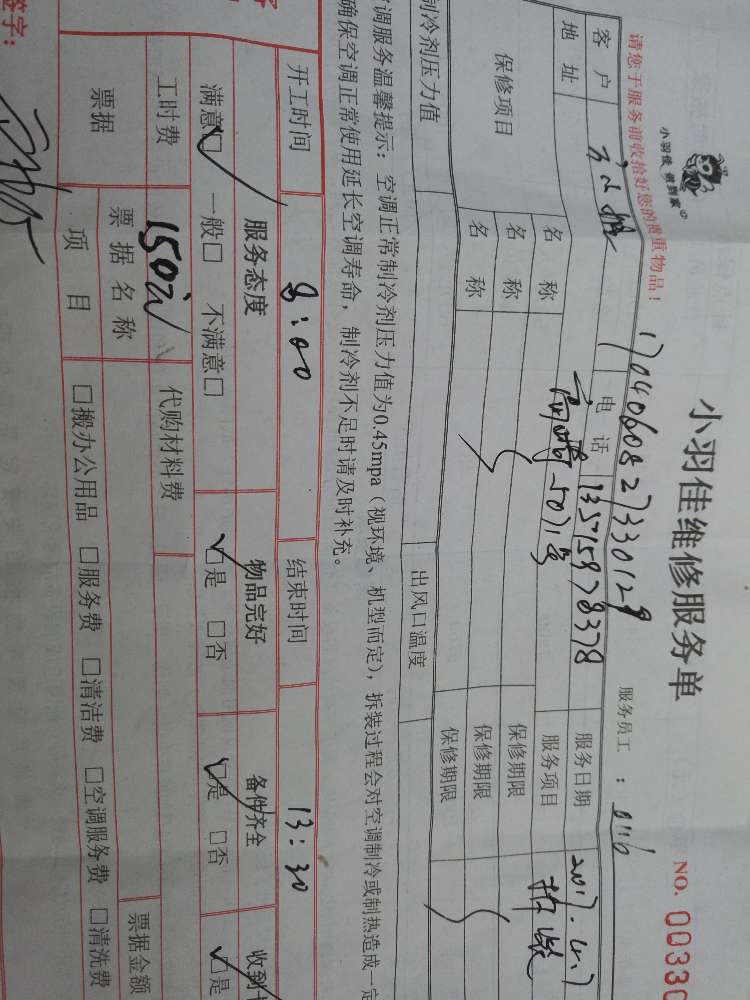 小羽佳维修服务单
小羽佳 携到家
NO. 00330
请您于服务前收拾好您的贵重物品！
服务员工：
客户
电话 13515978378
服务日期 2017.4.7
地址
501室
服务项目 拆装
保修项目
名称
保修期限
名称
保修期限
名称
保修期限
制冷剂压力值
出风口温度
空调服务温馨提示：空调正常制冷剂压力值为0.45mpa（视环境、机型而定），拆装过程会对空调制冷或制热造成一定
确保空调正常使用延长空调寿命，制冷剂不足时请及时补充。
开工时间 8:00 结束时间 13:30
服务态度 物品完好 备件齐全 收到
满意☑ 一般□ 不满意□ ☑是 □否 ☑是 □否 ☑是
工时费 150元 代购材料费
票据 票据名称 票据金额
项目 □搬办公用品 □服务费 □清洁费 □空调服务费 □清洗费
签字：